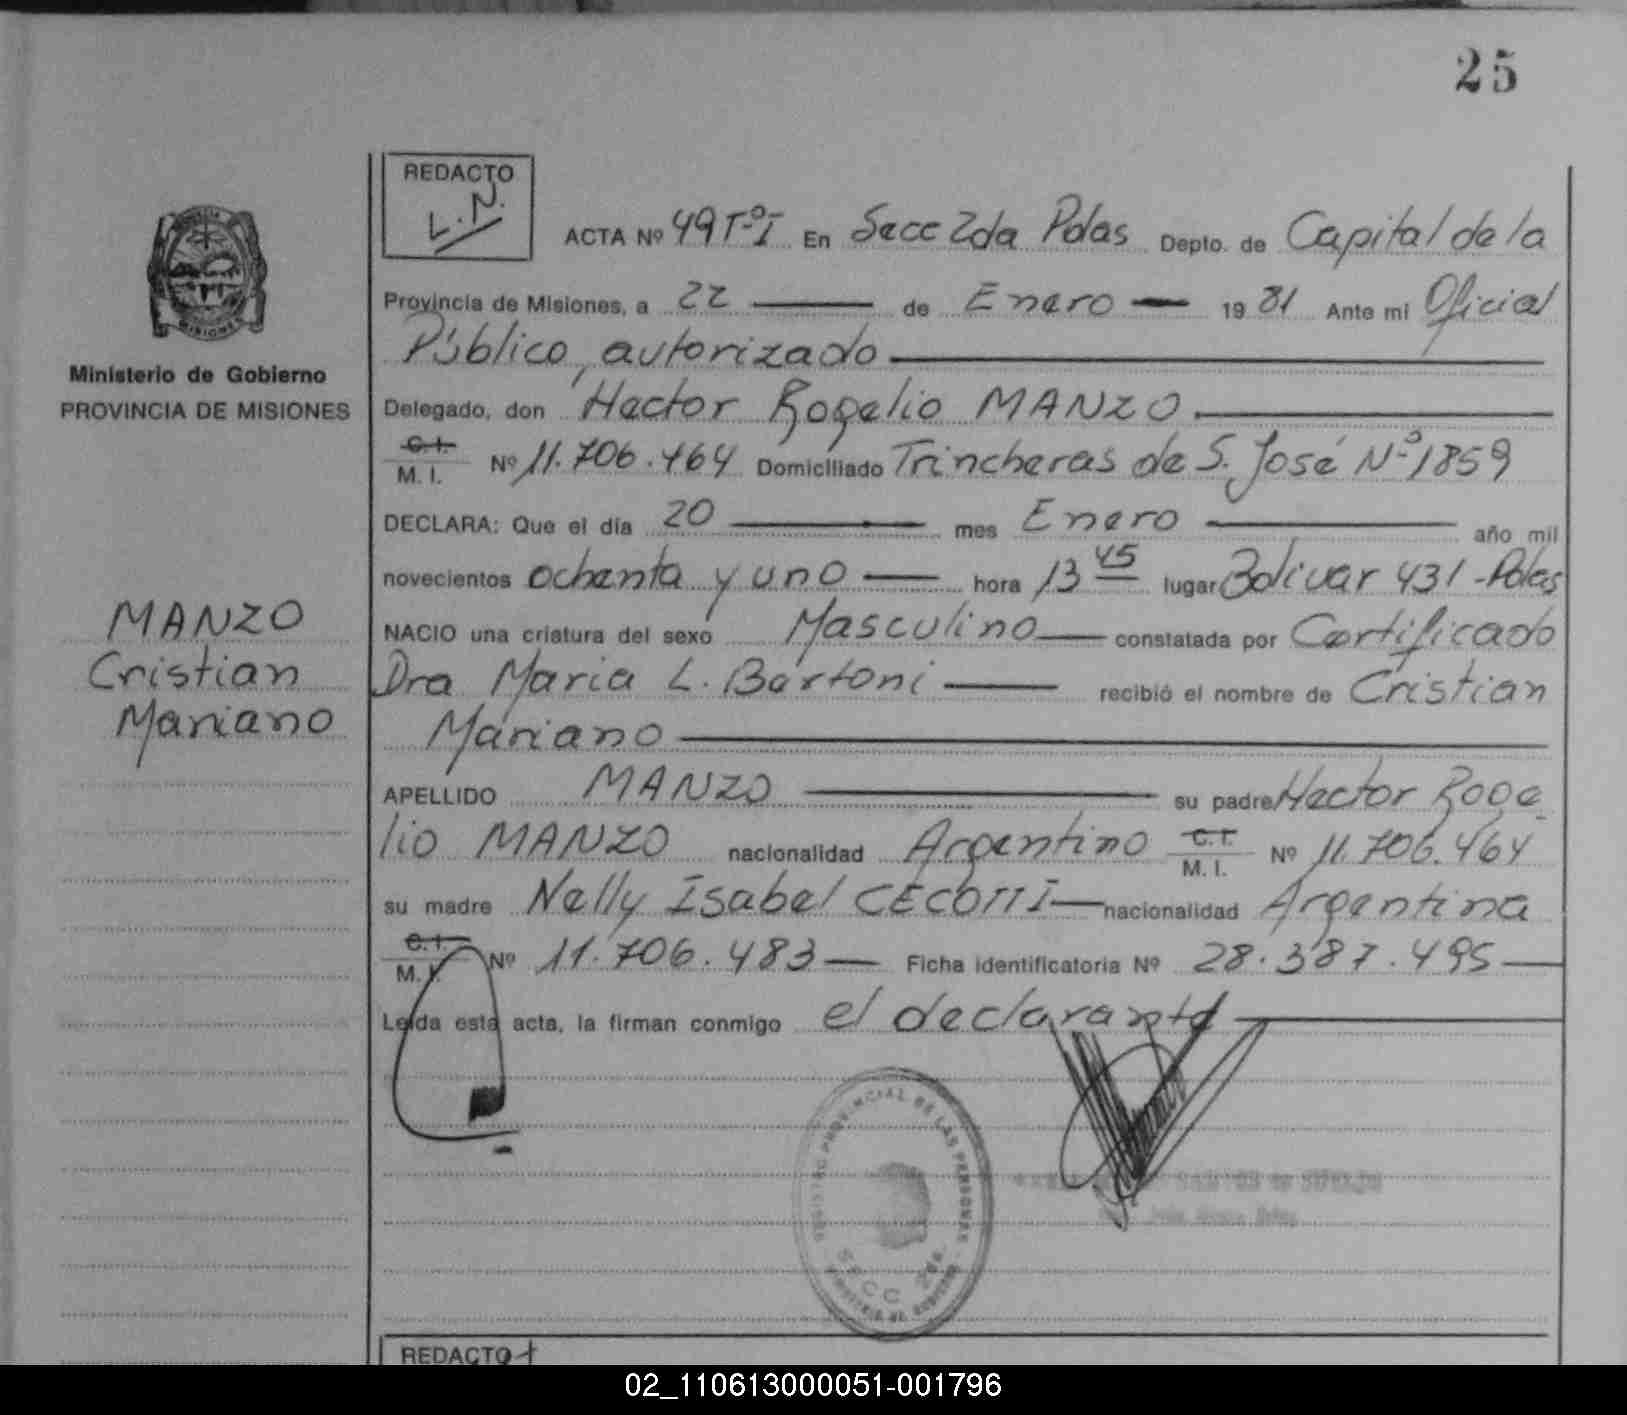 25
REDACTO
L.N.
ACTA Nº 49 Tº I En Secc 2da Pdas Depto. de Capital de la
Provincia de Misiones, a 22 de Enero 1981 Ante mi Oficial
Público, autorizado
Ministerio de Gobierno
PROVINCIA DE MISIONES
Delegado, don Hector Rogelio MANZO
C.I.
M. I. Nº 11.706.464 Domiciliado Trincheras de S. José Nº 1859
DECLARA: Que el día 20 mes Enero año mil
novecientos ochenta y uno hora 13 45 lugar Bolivar 431 - Pdas
MANZO
Cristian
Mariano
NACIO una criatura del sexo Masculino constatada por Certificado
Dra Maria L. Bartoni recibió el nombre de Cristian
Mariano
APELLIDO MANZO su padre Hector Roge
lio MANZO nacionalidad Argentino C.I. M. I. Nº 11.706.464
su madre Nelly Isabel CECOTTI nacionalidad Argentina
C.I.
M. I. Nº 11.706.483 Ficha identificatoria Nº 28.387.495
Leída esta acta, la firman conmigo el declarante
REGISTRO PROVINCIAL DE LAS PERSONAS
SECC 2da.
MINISTERIO DE GOBIERNO
REDACTO
02_110613000051-001796